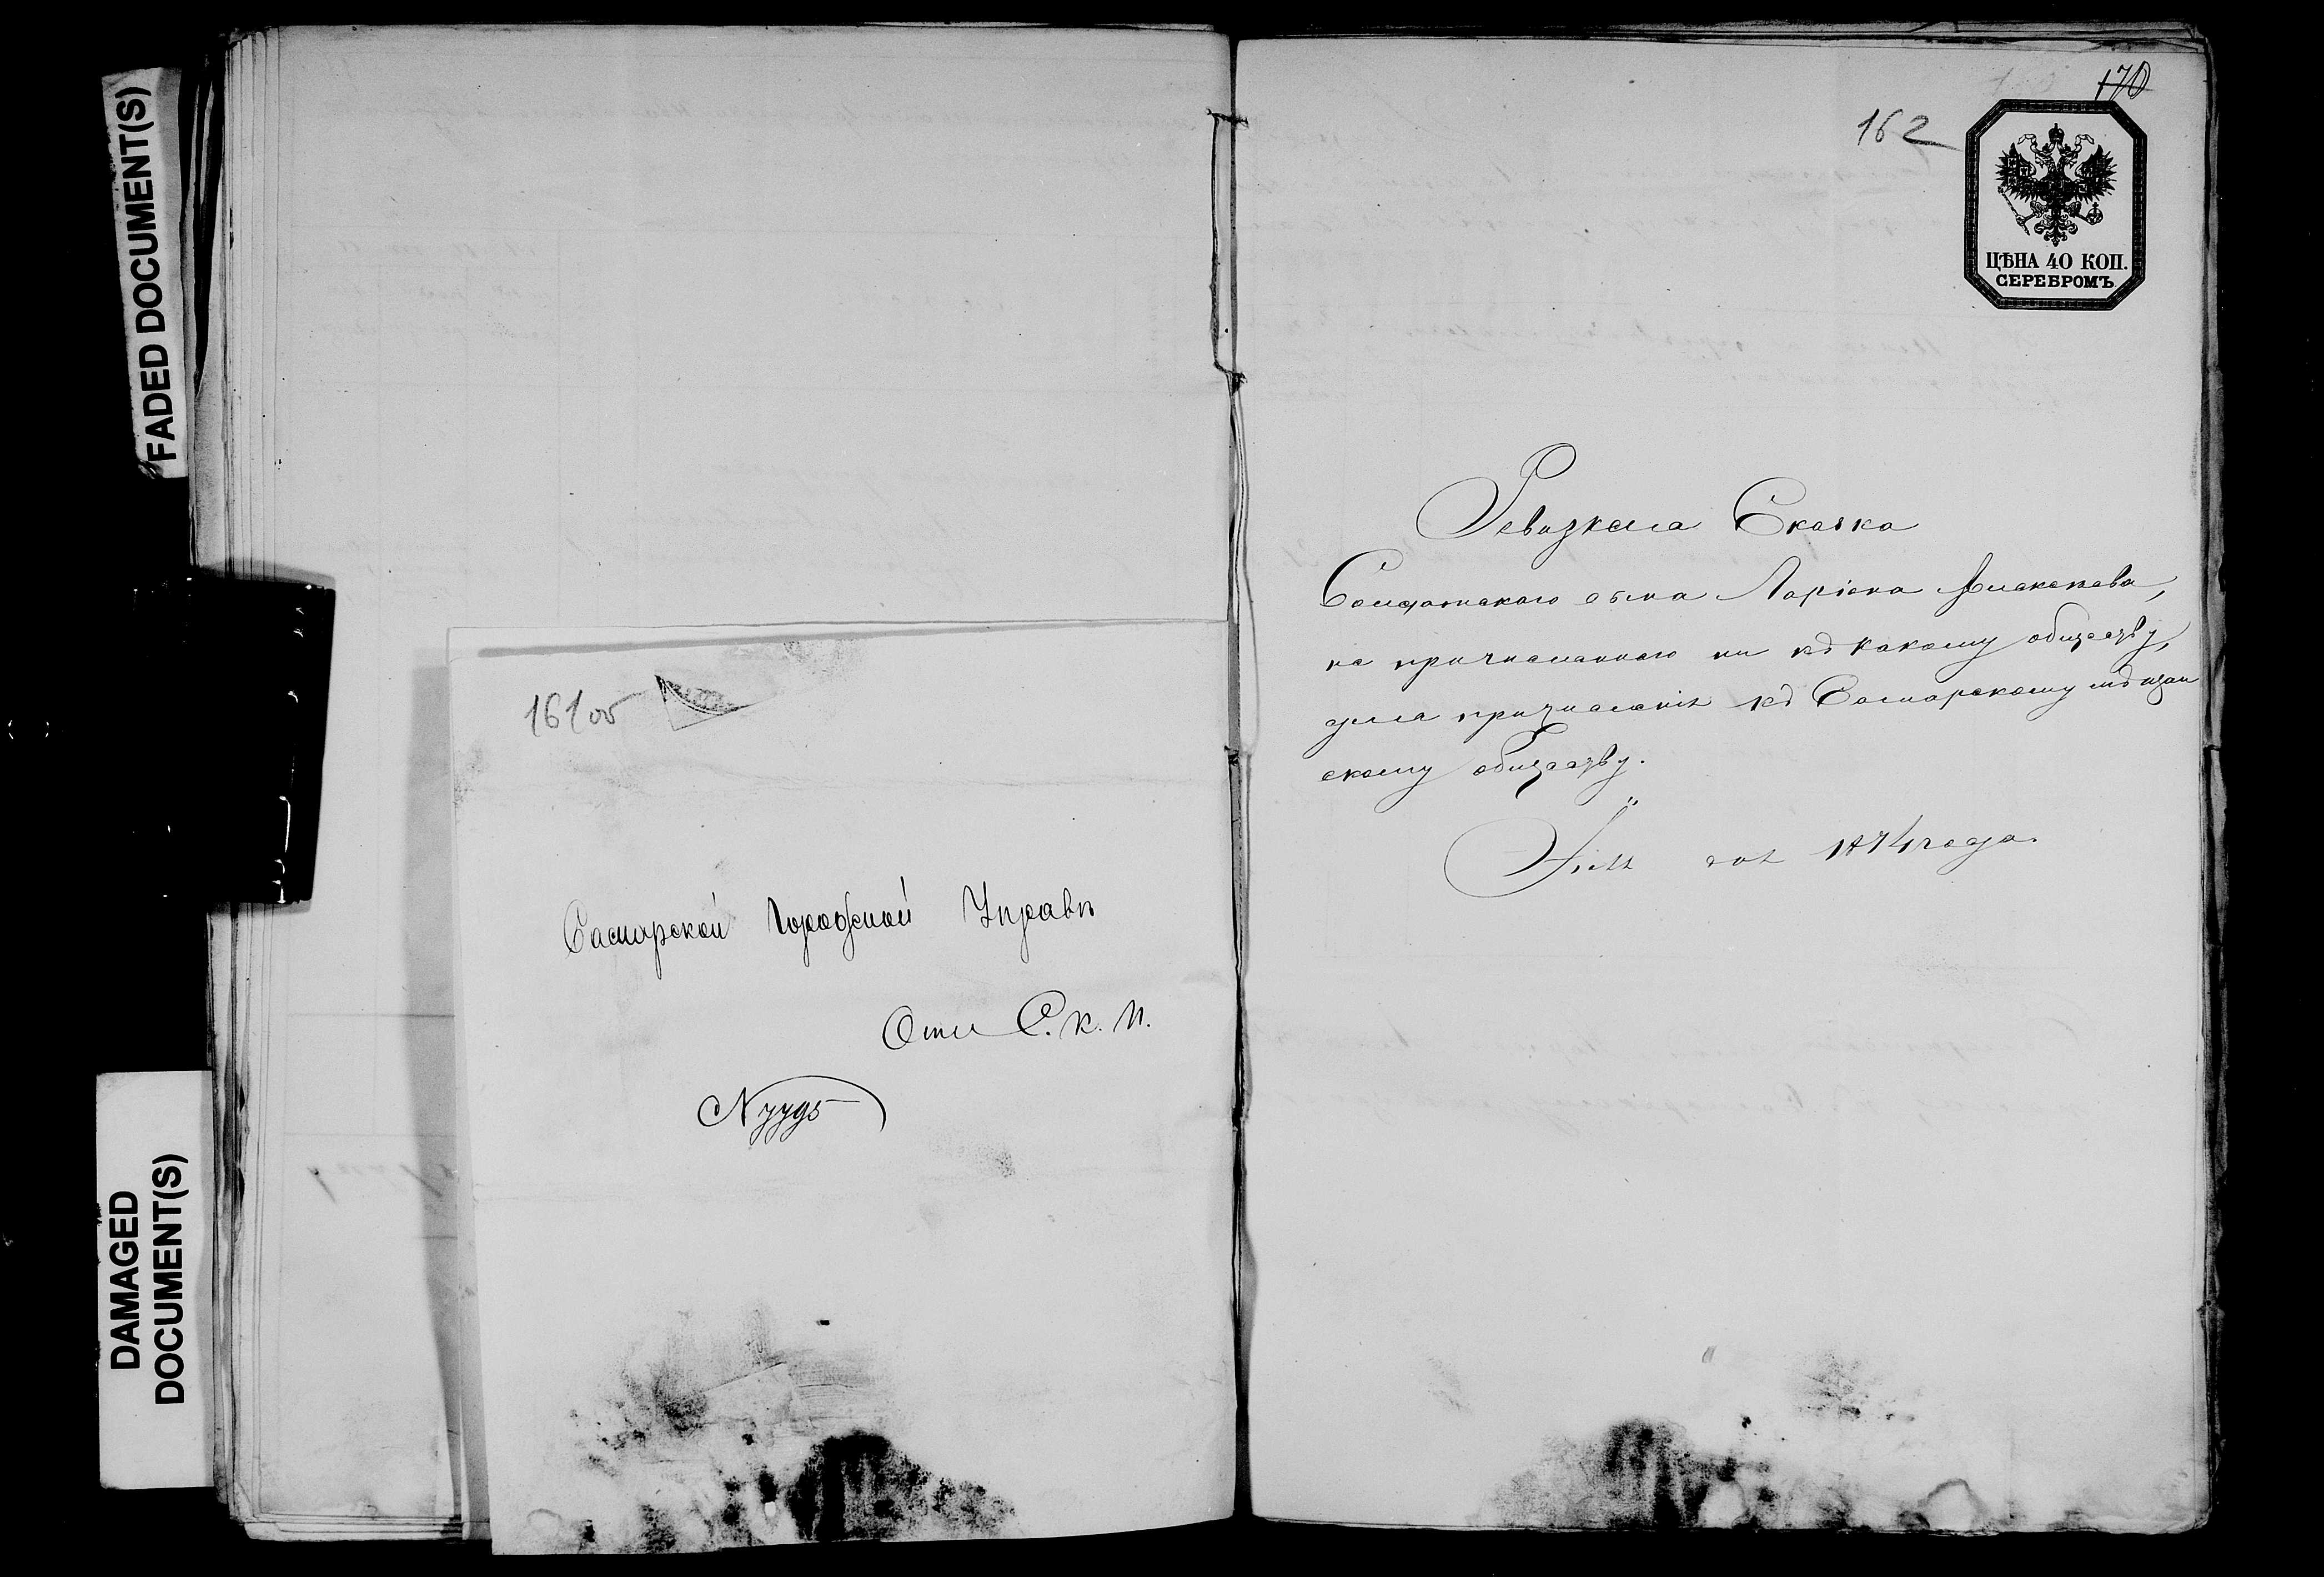 FADED DOCUMENT(S)
DAMAGED
DOCUMENT(S)
161об
Самарской Городской Управѣ
Отъ С. К. П.
N 7795
170
162
ЦѢНА 40 КОП.
СЕРЕБРОМЪ.
Ревизкая Сказка
Солдатскаго сына Ларіона
не причисленнаго ни къ какому обществу,
для причисленія къ Самарскому мѣщан
скому обществу.
Іюля дня 1874 года.